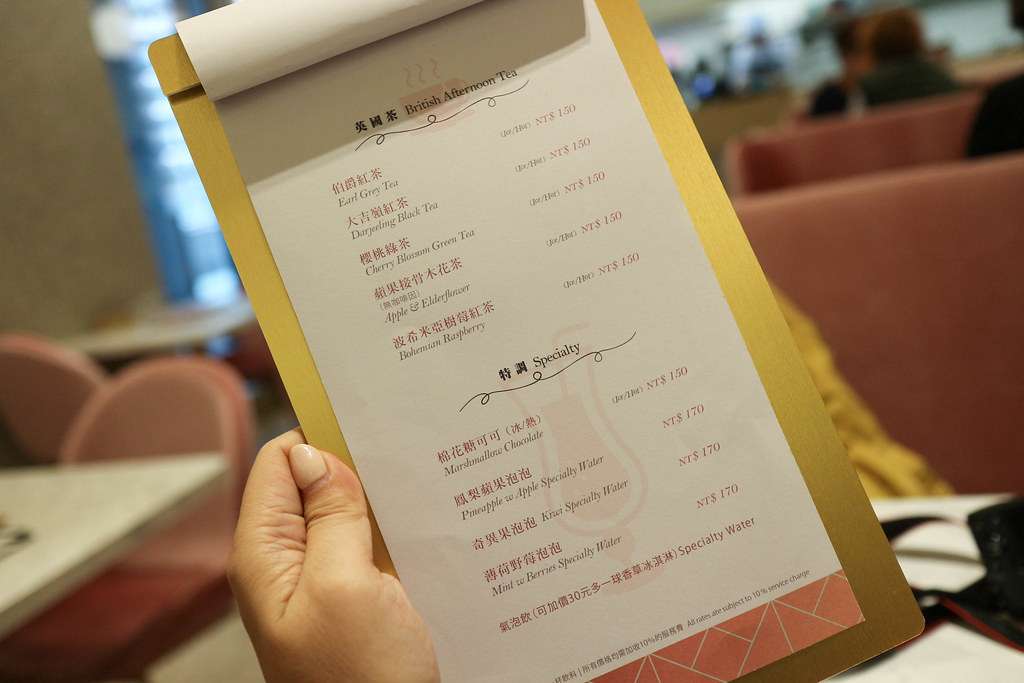 英國茶 British Afternoon Tea
伯爵紅茶 (Ice/Hot) NT$ 150
Earl Grey Tea
大吉嶺紅茶 (Ice/Hot) NT$ 150
Darjeeling Black Tea
櫻桃綠茶 (Ice/Hot) NT$ 150
Cherry Blossom Green Tea
蘋果接骨木花茶 (Ice/Hot) NT$ 150
(無咖啡因)
Apple & Elderflower
波希米亞樹莓紅茶 (Ice/Hot) NT$ 150
Bohemian Raspberry
特調 Specialty
棉花糖可可 (冰/熱) (Ice/Hot) NT$ 150
Marshmallow Chocolate
鳳梨蘋果泡泡 NT$ 170
Pineapple w Apple Specialty Water
奇異果泡泡 Kiwi Specialty Water NT$ 170
薄荷野莓泡泡 NT$ 170
Mint w Berries Specialty Water
氣泡飲(可加價30元多一球香草冰淇淋)Specialty Water
飲料 | 所有價格均需加收10%的服務費 All rates are subject to 10% service charge